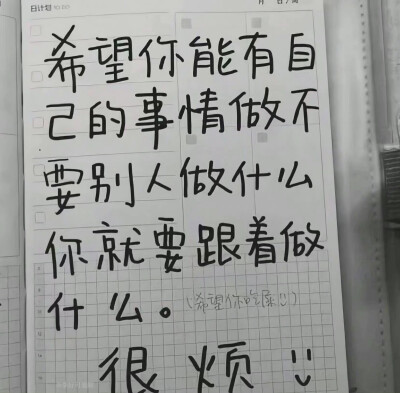 日计划
月 日/周
希望你能有自
己的事情做不
要别人做什么
你就要跟着做
什么。(希望你吃屎ㄩ)
很烦